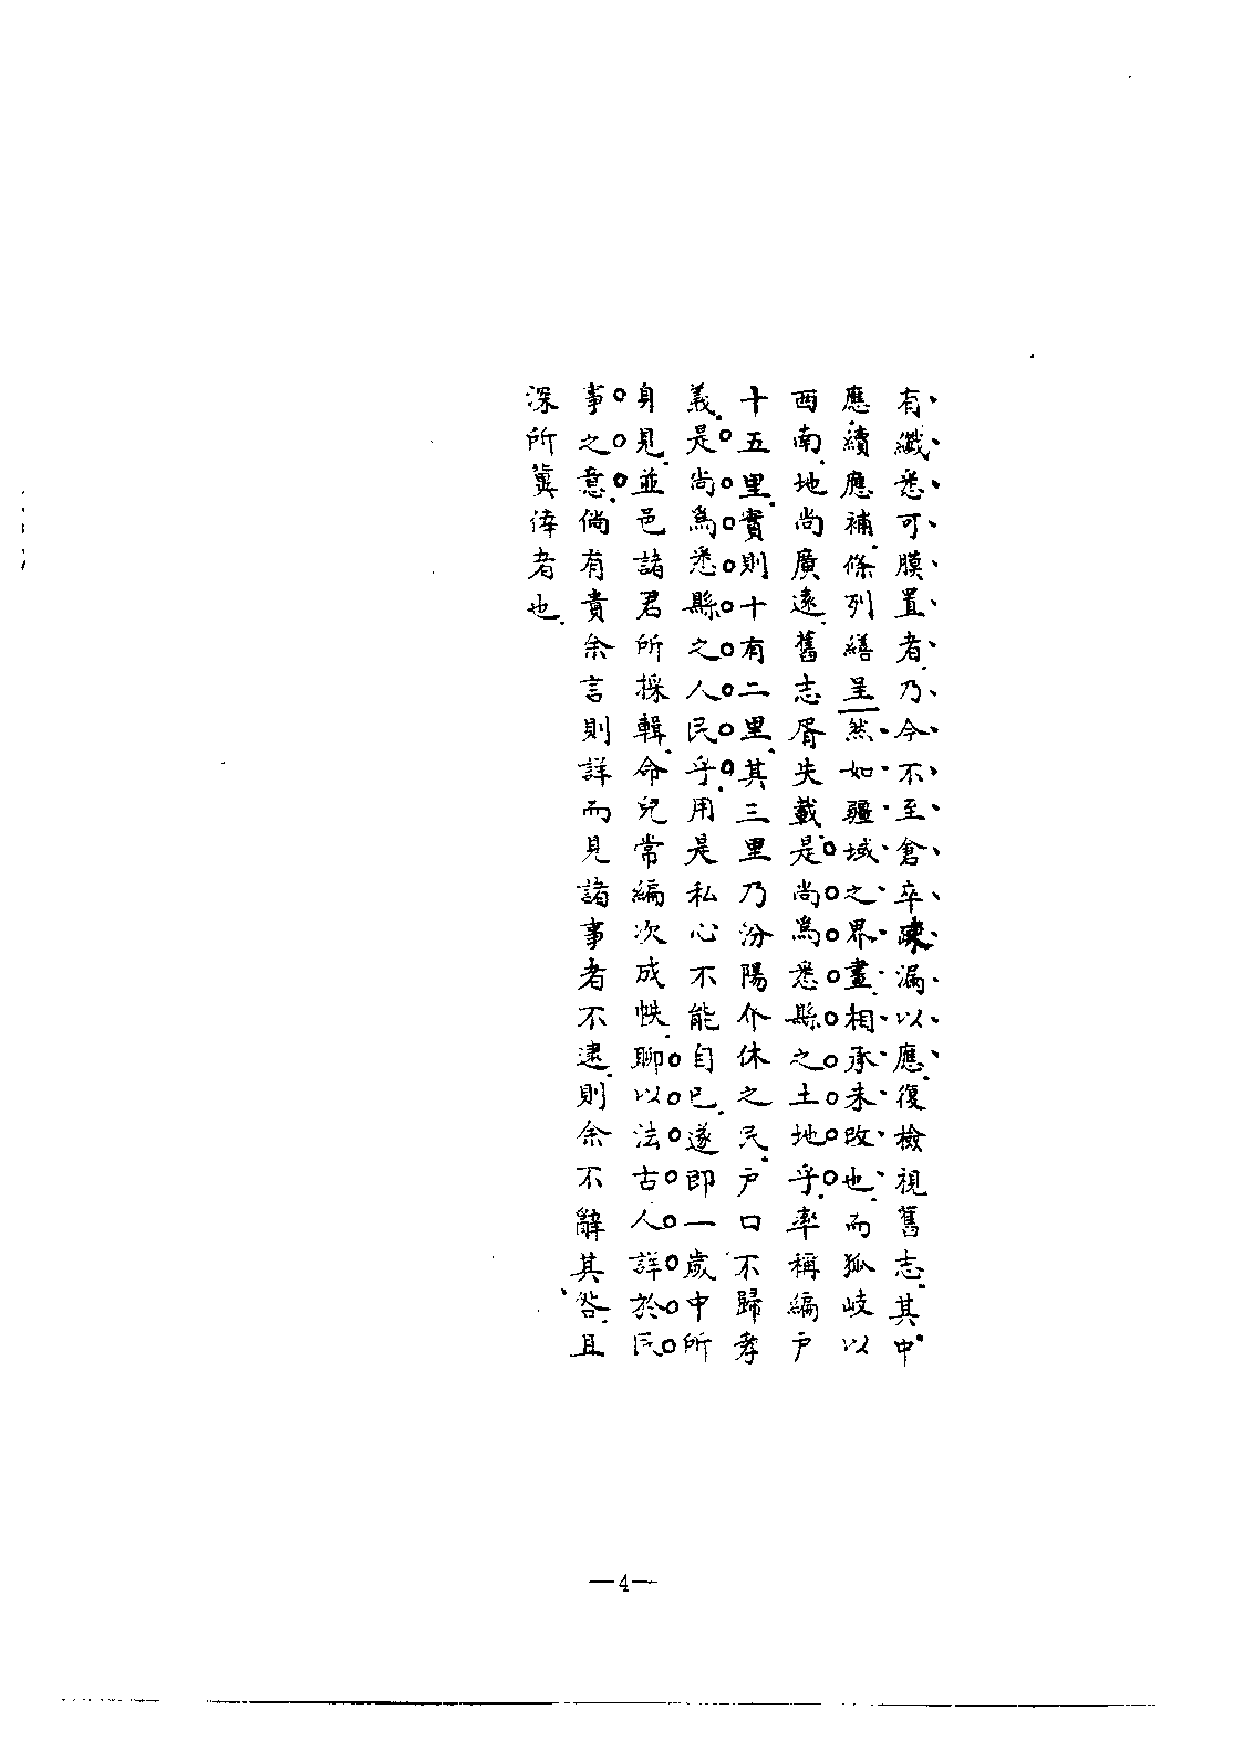 有纖悉可膜置者乃今不至倉卒疎漏以應復檢視舊志其中
應續應補條列繕呈然如疆域之界畫相承未改也而狐岐以
西南地尚廣遠舊志胥失載是尚爲悉縣之土地乎率稱編戸
十五里實則十有二里其三里乃汾陽介休之民戸口不歸孝
義是尚爲悉縣之人民乎用是私心不能自已遂即一歲中所
身見並邑諸君所採輯命兒常編次成帙聊以法古人詳於民
事之意倘有責余言則詳而見諸事者不逮則余不辭其咎且
深所冀倖者也
—4—